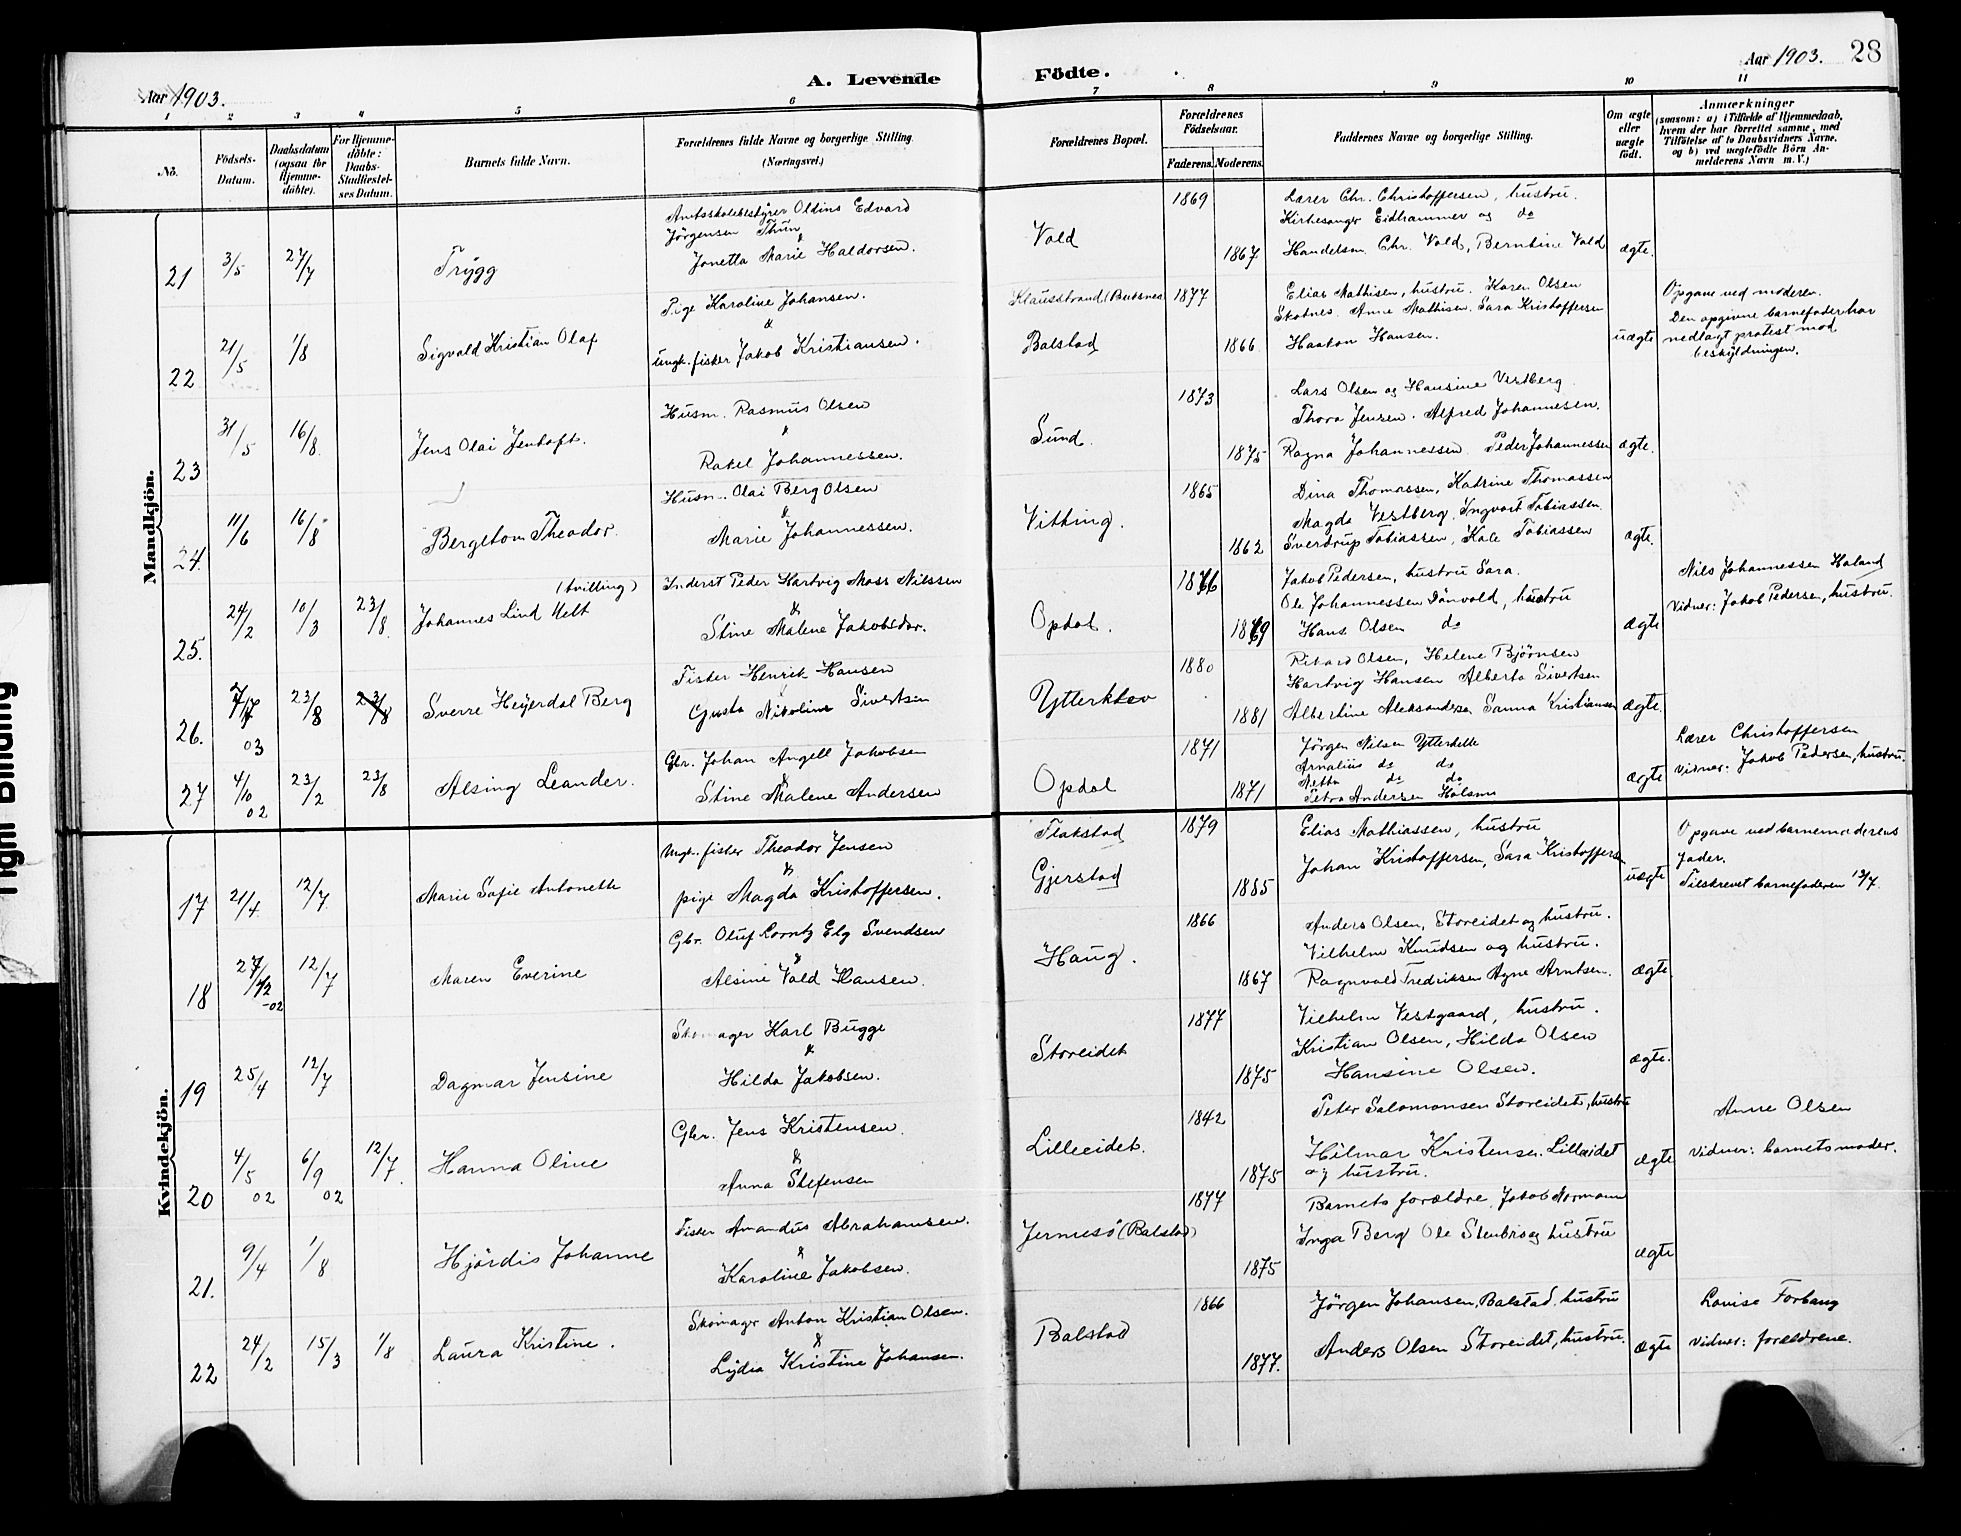 Aar 1903.
A. Levende
Födte.
Aar 1903.
28
1
2
3
4
5
6
7
8
9
10
11
No.
Födsels-
Datum.
Daabsdatum
(ogsaa for
Hjemme-
döbte).
For Hjemme-
döbte:
Daabs-
Stadfæstel-
ses Datum.
Barnets fulde Navn.
Forældrenes fulde Navne og borgerlige Stilling.
(Næringsvei.)
Forældrenes Bopæl.
Forældrenes
Födselsaar.
Faderens.
Moderens.
Faddernes Navne og borgerlige Stilling.
Om ægte
eller
uægte
födt.
Anmærkninger
(saasom: a) i Tilfælde af Hjemmedaab,
hvem der har forrettet samme, med
Tilföielse af to Daabsvidners Navne,
og b) ved uægtefödte Börn An-
melderens Navn m. V.)
Mandkjön.
21
3/5
27/7
Trygg
Amtsskolebestyrer Oldins Edvard
Jörgensen Thun
&
Jonetta Marie Haldorsen.
Vold
1869
1867
Lærer Chr. Christoffersen, hustru.
Kirkesanger Eidhammer og do
Handelsm. Chr. Vold, Berntine Vold
ægte.
22
21/5
1/8
Sigvald Kristian Olaf
Pige Karoline Johansen.
&
Ungk. fisker Jakob Kristiansen.
Klausstrand (Buksnes)
Balstad
1877
1866
Elias Mathisen, hustru. Karen Olsen
Skotnes. Anne Mathisen. Sara Kristoffersen
Haakon Hansen.
uægte
Opgave ved moderen.
Den opgivne barnefader har
nedlagt protest mod
beskyldningen.
23
31/5
16/8
Jens Olai Jentoft.
Husm. Rasmus Olsen
&
Rakel Johannessen.
Sund.
1873
1875
Lars Olsen og Hansine Vestberg
Thora Jensen. Alfred Johannesen.
Ragna Johannessen Peder Johannessen
ægte.
24.
11/6
16/8
Bergetom Theodor.
Husm. Olai Berg Olsen
&
Marie Johannessen.
Vitting.
1865
1862
Dina Thomassen, Katrine Thomassen
Magda Vestberg. Ingvart Tobiassen.
Sverdrup Tobiassen, Kale Tobiassen
ægte.
25.
24/2
10/3
23/8.
(tvilling)
Johannes Lind Melt
Inderst Peder Hartvig Moss Nilssen
&
Stine Malene Jakobsdor.
Opdal.
Jakob Pedersen, hustru Sara.
Ole Johannessen Dönvold, hustru
Hans Olsen do
ægte
Nils Johannessen Holand
Vidner: Jakob Pedersen, hustru.
26.
03
23/8
23/8
Sverre Heyerdal Berg
Fisker Henrik Hansen
&
Gusta Nikoline Sivertsen
Ytterklev
1880
1881
Rikard Olsen, Helene Bjørnsen
Hartvig Hansen Alberta Sivertsen
Albertine Aleksandersen Sanna Kristiansen
ægte.
27
4/10
02
23/2
23/8
Alsing Leander.
Gbr. Johan Angell Jakobsen
&
Stine Malene Andersen
Opdal
1871
1871
Jörgen Nilsen Ytterkelle
Arnalius do do
Netta do do
Petra Andersen Holsmo
ægte
Lærer Christoffersen
Vidner: Jakob Pedersen, hustru.
Kvindekjön.
17
21/4
12/7
Marie Sofie Antonette
Ungk. fisker Theodor Jensen
&
pige Magda Kristoffersen.
Flakstad
Gjerstad
1879
1885
Elias Mathiassen, hustru
Johan Kristoffersen, Sara Kristoffersen
uægte
Opgave ved barnemoderens
fader.
Tilskrevet barnefaderen 13/7.
18
27/12
-02
12/7
Maren Everine
Gbr. Oluf Lorntz Elg Svendsen
&
Alsine Vold Hansen.
Haug.
1866
1867
Anders Olsen, Storeidet og hustru.
Vilhelm Knudsen og hustru.
Ragnvald Fredriksen Agne Arntsen.
ægte
19
25/4
12/7
Dagmar Jensine
Skomager Karl Bugge
&
Hilda Jakobsen.
Storeidet
1877
1875
Vilhelm Vestgaard, hustru.
Kristian Olsen, Hilda Olsen
Hansine Olsen.
ægte.
20
4/5
02
6/9
02
12/7.
Hanna Oline
Gbr. Jens Kristensen.
&
Anna Stefensen
Lilleeidet.
1842
1875
Peter Salomonsen Storeidet, hustru
Hilmar Kristensen. Lilleeidet
og hustru.
ægte
Anne Olsen
Vidner: barnets moder.
21.
9/4
1/8
Hjördis Johanne
Fisker Amandus Abrahamsen.
&
Karoline Jakobsen.
Jermesö (Balstad)
1877
1875
Barnets forældre, Jakob Normann
Inga Berg Ole Stenbro og hustru
ægte
22
24/2
15/3
1/8
Laura Kristine.
Skomager Anton Kristian Olsen.
&
Lydia Kristine Johansen.
Balstad
1866
1877.
Jörgen Johansen, Balstad, hustru
Anders Olsen Storeidet, hustru.
ægte
Lovise Forbang
Vidner: forældrene.
Tight Binding